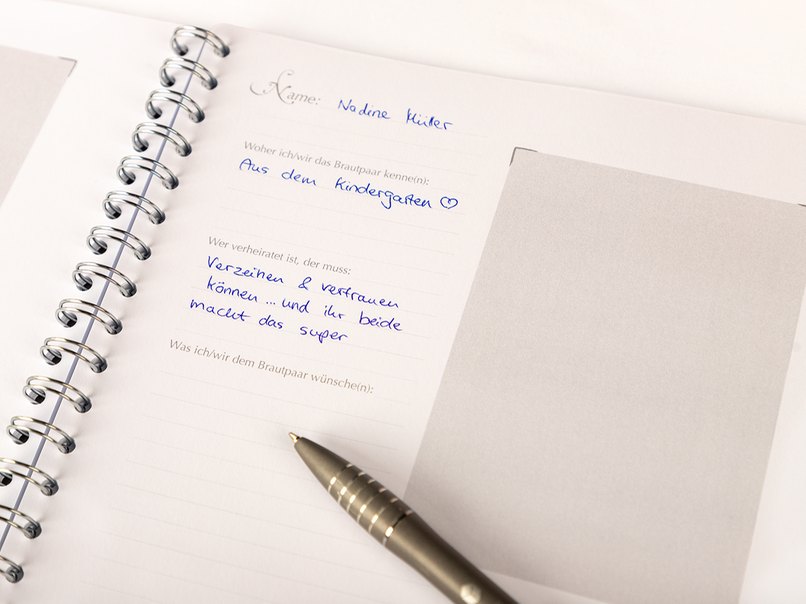 Name: Nadine Müller
Woher ich/wir das Brautpaar kenne(n):
Aus dem Kindergarten ♡
Wer verheiratet ist, der muss:
Verzeihen & vertrauen
können ... und ihr beide
macht das super
Was ich/wir dem Brautpaar wünsche(n):